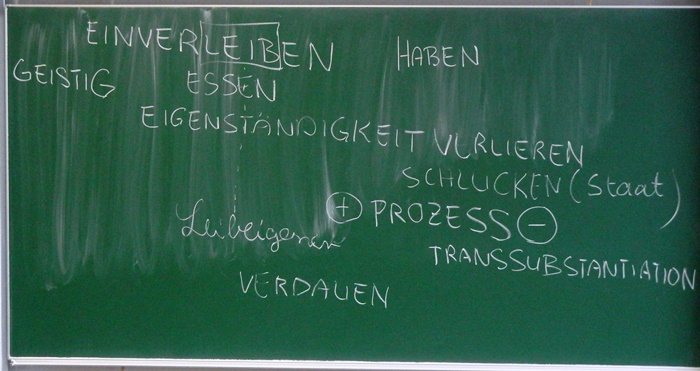 EINVERLEIBEN HABEN
GEISTIG ESSEN
EIGENSTÄNDIGKEIT VERLIEREN
SCHLUCKEN (Staat)
+ PROZESS -
Leibeigener
TRANSSUBSTANTIATION
VERDAUEN